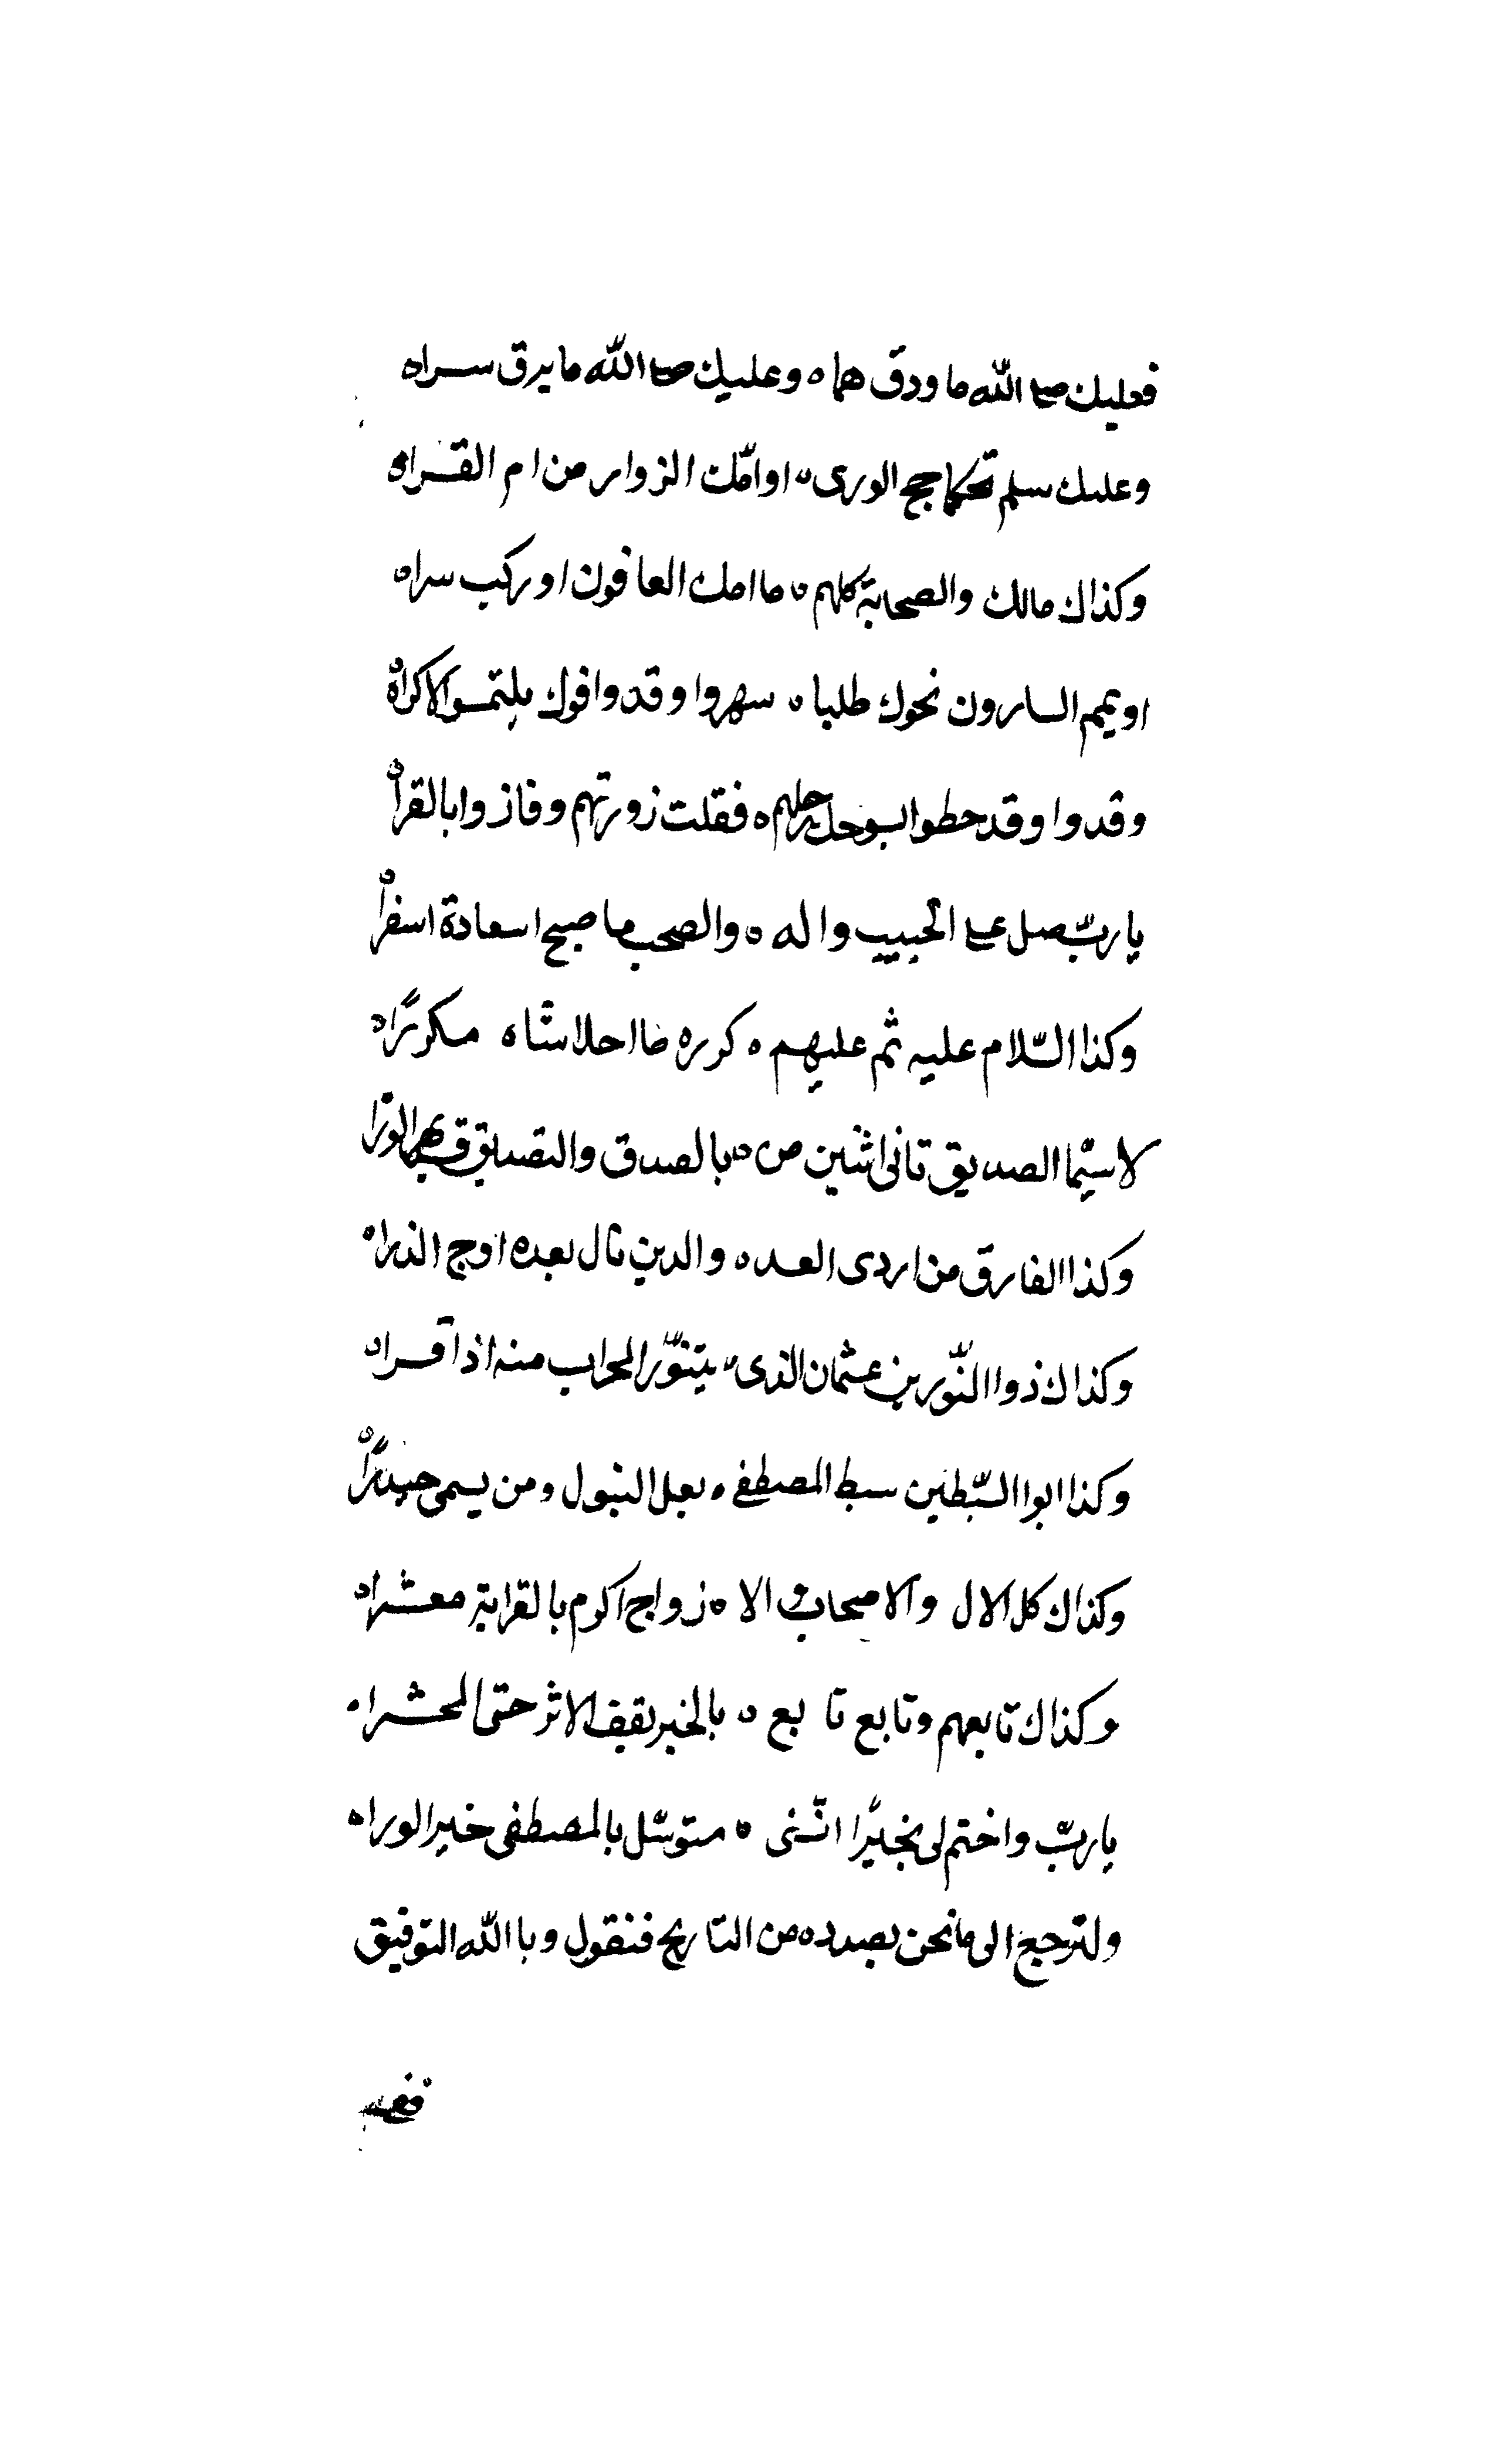 فعليك صلى الله ما ودق هما ه وعليك صلى الله ما برق سراه
وعليك سلم كما حج الورى ه او امّك الزوار من ام القراه
وكذاك مالك والصحابة كلهم ه ما امك العافون او ركب سراه
او يمم السارون نحوك طلبا ه سهروا وقد وافوك يلتمسوا الاكراه
وقدوا وقد حطوا بسوحك رحلهم ه فقلت زورتهم وفازوا بالقراه
يا ربّ صل على الحبيب واله ه والصحب ما صبح السعادة اسفراه
وكذا السّلام عليه ثم عليهم ه كرره ما احلا شاه مكررًاه
لا سيّما الصديق ثانى اثنين من ه بالصدق والتصديق الورا
وكذا الفارق من اردى العده ه والدين نال بعده اوج الذراه
وكذاك ذوا النّورين عثمان الذى ه يتنوّر المحراب منه اذا قراه
وكذا ابوا السّبطين سبط المصطفى ه بعل البتول ومن يسمى حيدرًاه
وكذاك كل الال والاصحاب و الا ه زواج اكرم بالقرابة معشراه
وكذاك تابعهم وتابع تا بع ه بالخير يقف الاثر حتى المحشراه
يا ربّ واختم لى بخيرًا انّنى ه متوسّل بالمصطفى خير الوراه
ولنرجع الى ما نحن بصدده من التاريخ فنقول وبا الله التوفيق